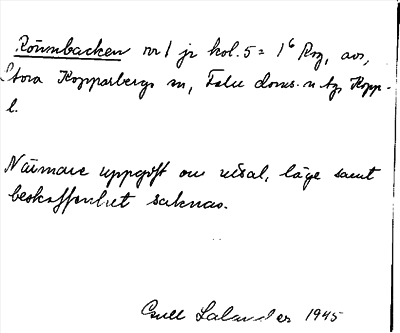 Rönnbacken nr 1 jr kol. 5 = 1⁶ Rog, avs,
Stora Kopparbergs sn, Falu doms. o. tg. Kopp.
l.
Närmare uppgift om reısal, läge samt
beskaffenhet saknas.
Salander 1945